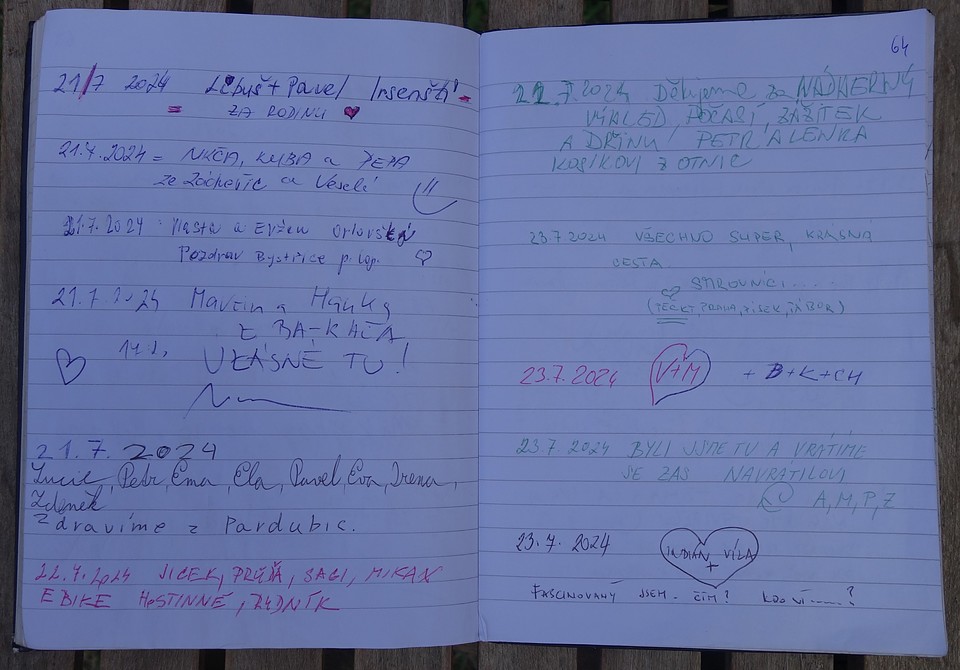 21/7 2024 Libuš + Pavel
= ZA RODINU ♥
21.7.2024 = KUBA a PEPA
ze a Veselí
21.7.2024 Vlasta a Evžen Orlovský
Pozdrav Bystřice p. ♡
21.7.2024 Martin a Hanka
Z
♡ ÚŽASNĚ TU!
21.7.2024
Lucie, Petr, Ema, Ela, Pavel, Eva, Irena,
Zdeněk
Zdravíme z Pardubic.
22.7.2024 JICEK, SAGI, MIKAX
EBIKE HOSTINNÉ,
64
22.7.2024 Děkujeme za NÁDHERNÝ
VÝHLED, POČASÍ, ZÁŽITEK
A DŘINU PETR, ALENKA
KOSÍKOVI Z OTNIC
23.7.2024 VŠECHNO SUPER, KRÁSNÁ
CESTA
♡ STROVNÍCI....
(PÍSEK, TÁBOR)
23.7.2024 V+M + B+K+CH
23.7.2024 BYLI JSME TU A VRÁTÍME
SE ZAS NAVRÁTILOVI
A, M, P, Z
23.7.2024 INDIÁN + VÍLA
FASCINOVANÝ JSEM. ČÍM? KDO VÍ......?